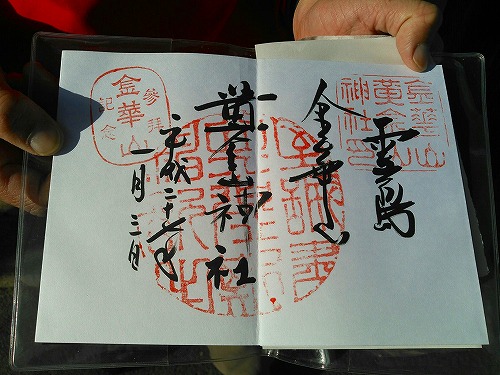 霊島
金華山
黄金山神社
平成二十七年
一月三日
金華山
黄金山
神社印
参拝
金華山
記念